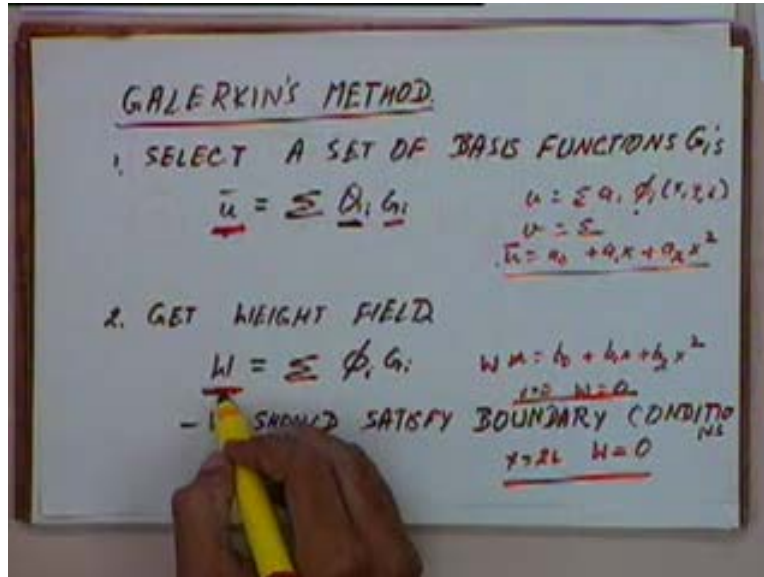 GALERKIN'S METHOD.
1. SELECT A SET OF BASIS FUNCTIONS Gi's
ū = Σ Qi Gi
u = Σ ai φi (x, y, z)
u = Σ
ū = a0 + a1x + a2x²
2. GET WEIGHT FIELD
W = Σ φi Gi
= b0 + b1x + b2x²
W=0
- SHOULD SATISFY BOUNDARY CONDITIONS
x=2L W=0